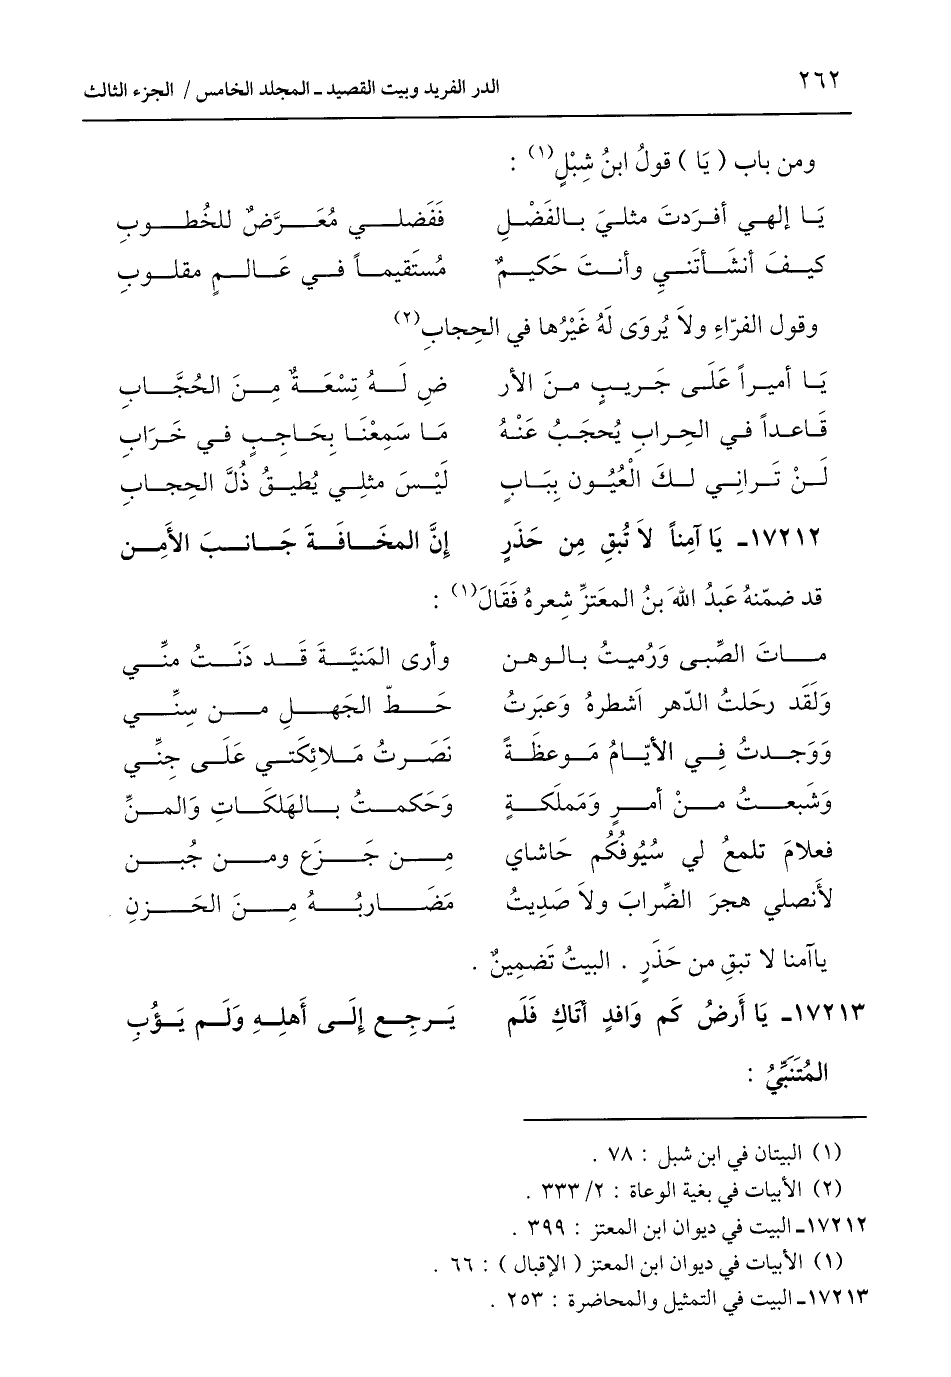 ٢٦٢ الدر الفريد وبيت القصيد ـ المجلد الخامس / الجزء الثالث
ومن باب ( يَا ) قولُ ابنُ شِبْلٍ(١) :
يَا إلهي أفرَدتَ مثليَ بالفَضْلِ فَفَضلي مُعَرَّضٌ للخُطوبِ
كيفَ أنشَأتَني وأنتَ حَكيمٌ مُستَقيماً في عَالمٍ مقلوبِ
وقول الفرّاءِ ولاَ يُروَى لَهُ غَيْرُها في الحِجابِ(٢)
يَا أميراً عَلَى جَريبٍ منَ الأر ضِ لَهُ تِسْعَةٌ مِنَ الحُجَّابِ
قَاعداً في الحِرابِ يُحجَبُ عَنْهُ مَا سَمِعْنَا بحَاجِبٍ في خَرَابِ
لَنْ تَرانِي لكَ الْعُيُون بِبَابٍ لَيْسَ مثلِي يُطيقُ ذُلَّ الحِجابِ
١٧٢١٢ـ يَا آمِناً لاَ تُبقِ مِن حَذَرٍ إنَّ المخَافَةَ جَانبَ الأَمنِ
قد ضمّنهُ عَبدُ اللهَ بنُ المعَتزِّ شِعرهُ فَقَالَ(١) :
مَاتَ الصِّبى وَرُميتُ بالوهنِ وأرى المَنيَّةَ قَد دَنَتُ منِّي
وَلَقَد رحَلتُ الدّهر اَشطرهُ وَعبَرتُ حَطّ الجَهلِ من سِنِّي
وَوَجدتُ فِي الأيَامُ مَوعظَةً نَصَرتُ مَلائِكَتي عَلَى جِنِّي
وَشَبعتُ منْ أمرٍ وَمَملَكةٍ وَحَكمتُ بالهَلكَاتِ وَالمنِّ
فعلامَ تلمعُ لي سُيُوفُكُم حَاشاي مِن جَزَعٍ ومن جُبنِ
لأَنصلي هجرَ الضِّرابَ ولاَ صَدِيتُ مَضَاربُهُ مِنَ الحَزنِ
ياآمنا لا تبقِ من حَذَرٍ . البيتُ تَضمِينٌ .
١٧٢١٣ـ يَا أَرضُ كَم وَافدٍ أتَاكِ فَلَم يَرجع إلَى أَهلِهِ وَلَم يَؤُبِ
المُتَنَبِّيُّ :
(١) البيتان في ابن شبل : ٧٨ .
(٢) الأبيات في بغية الوعاة : ٢/ ٣٣٣ .
١٧٢١٢ـ البيت في ديوان ابن المعتز : ٣٩٩ .
(١) الأبيات في ديوان ابن المعتز ( الإقبال ) : ٦٦ .
١٧٢١٣ـ البيت في التمثيل والمحاضرة : ٢٥٣ .